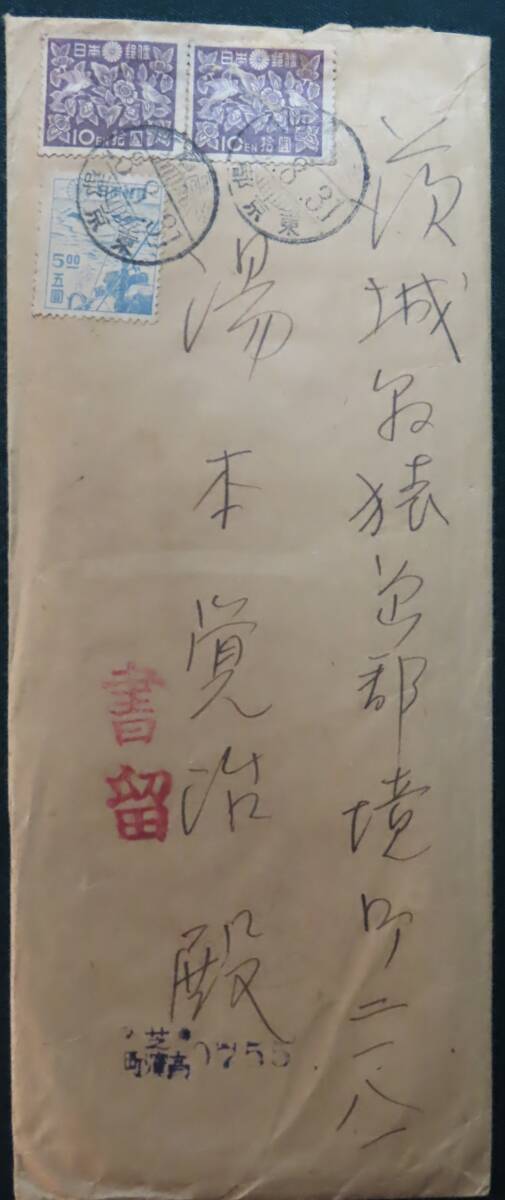 茨城県猿島郡境町二一八一
湯本覚治殿
書留
日本郵便
10EN拾圓
日本郵便
10EN拾圓
5.00
五圓
東京
8.31
東京
芝
高濱町
755